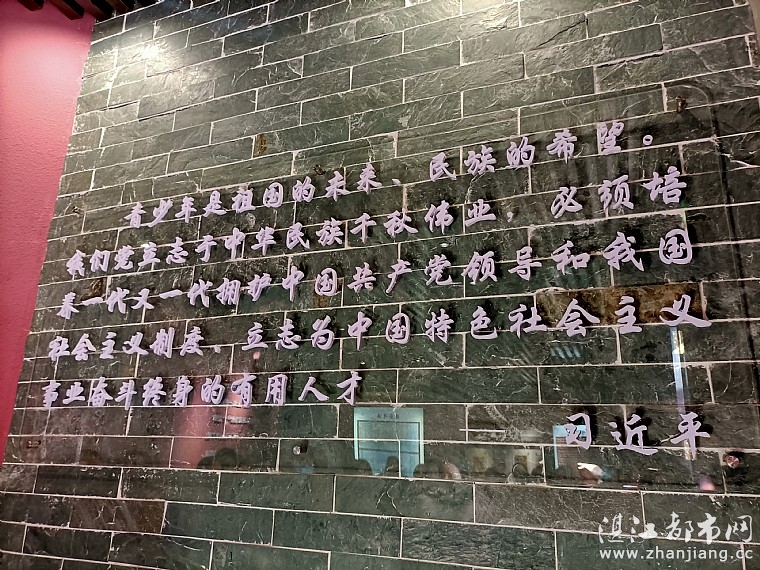 青少年是祖国的未来、民族的希望。
我们党立志于中华民族千秋伟业，必须培
养一代又一代拥护中国共产党领导和我国
社会主义制度、立志为中国特色社会主义
事业奋斗终身的有用人才
习近平
湛江都市网
www.zhanjiang.cc